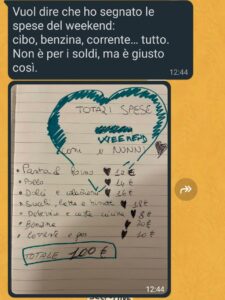 Vuol dire che ho segnato le
spese del weekend:
cibo, benzina, corrente... tutto.
Non è per i soldi, ma è giusto
così.
12:44
TOTALI SPESE
WEEKEND
con i NONNI
• Pasta al forno 12 €
• Pollo 14 €
• Dolci e colazioni 16 €
• Succhi, latte e 12 €
• Detersivo e carta 8 €
• Benzina 20 €
• Corrente e gas 10 €
TOTALE 100 €
12:44